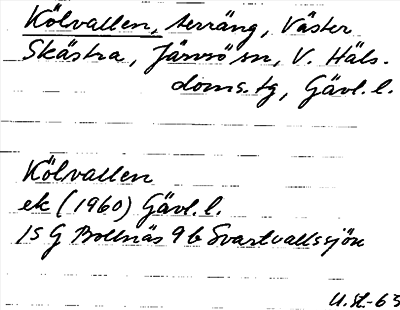 Kölvallen, terräng, Väster
Skästra, Järvsö sn, V. Häls.
doms.tg, Gävl. l.
Kölvallen
ek (1960) Gävl. l.
15 G Bollnäs 9 b Svartvallssjön
U. St.-63